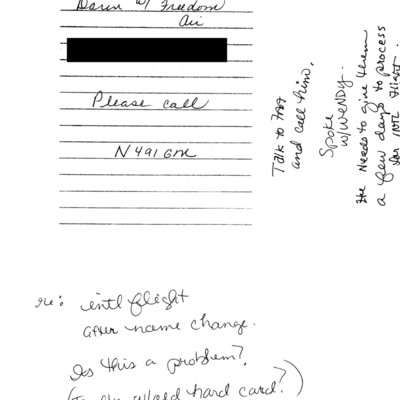 Dawn w/ Freedom
Air
Please call
N491GM
Talk to
and call him.
Spoke
w/WENDY.
He Needs to give them
a few days to process
for INTL flight.
re: intl flight
after name change.
Is this a problem?
hard card?)